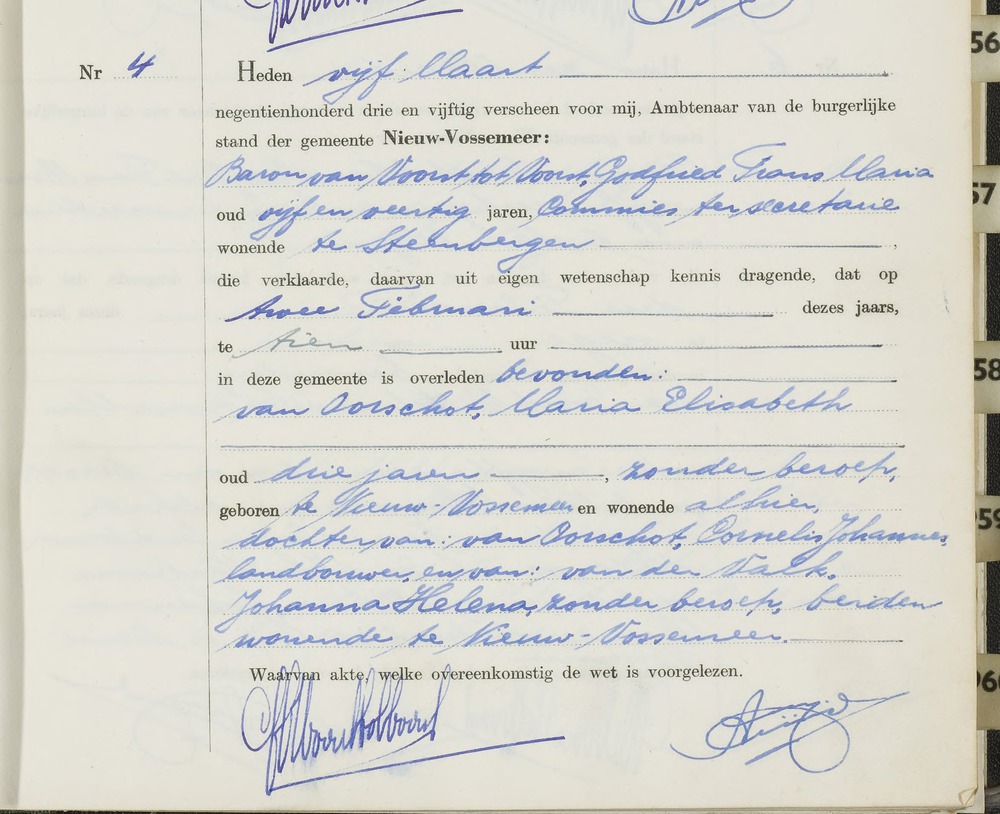 Nr 4 Heden vijf Maart
negentienhonderd drie en vijftig verscheen voor mij, Ambtenaar van de burgerlijke
stand der gemeente Nieuw-Vossemeer:
Baron van Voorst tot Voorst, Godfried Frans Maria
oud vijf en veertig jaren, Commies ter secretarie
wonende te Steenbergen ,
die verklaarde, daarvan uit eigen wetenschap kennis dragende, dat op
twee Februari dezes jaars,
te tien uur
in deze gemeente is overleden bevonden:
van Oorschot, Maria Elisabeth
oud drie jaren , zonder beroep,
geboren te Nieuw-Vossemeer en wonende alhier,
dochter van: van Oorschot, Cornelis Johannes,
landbouwer, en van: van der Valk,
Johanna Helena, zonder beroep, beiden
wonende te Nieuw-Vossemeer.
Waarvan akte, welke overeenkomstig de wet is voorgelezen.
56
57
58
959
960